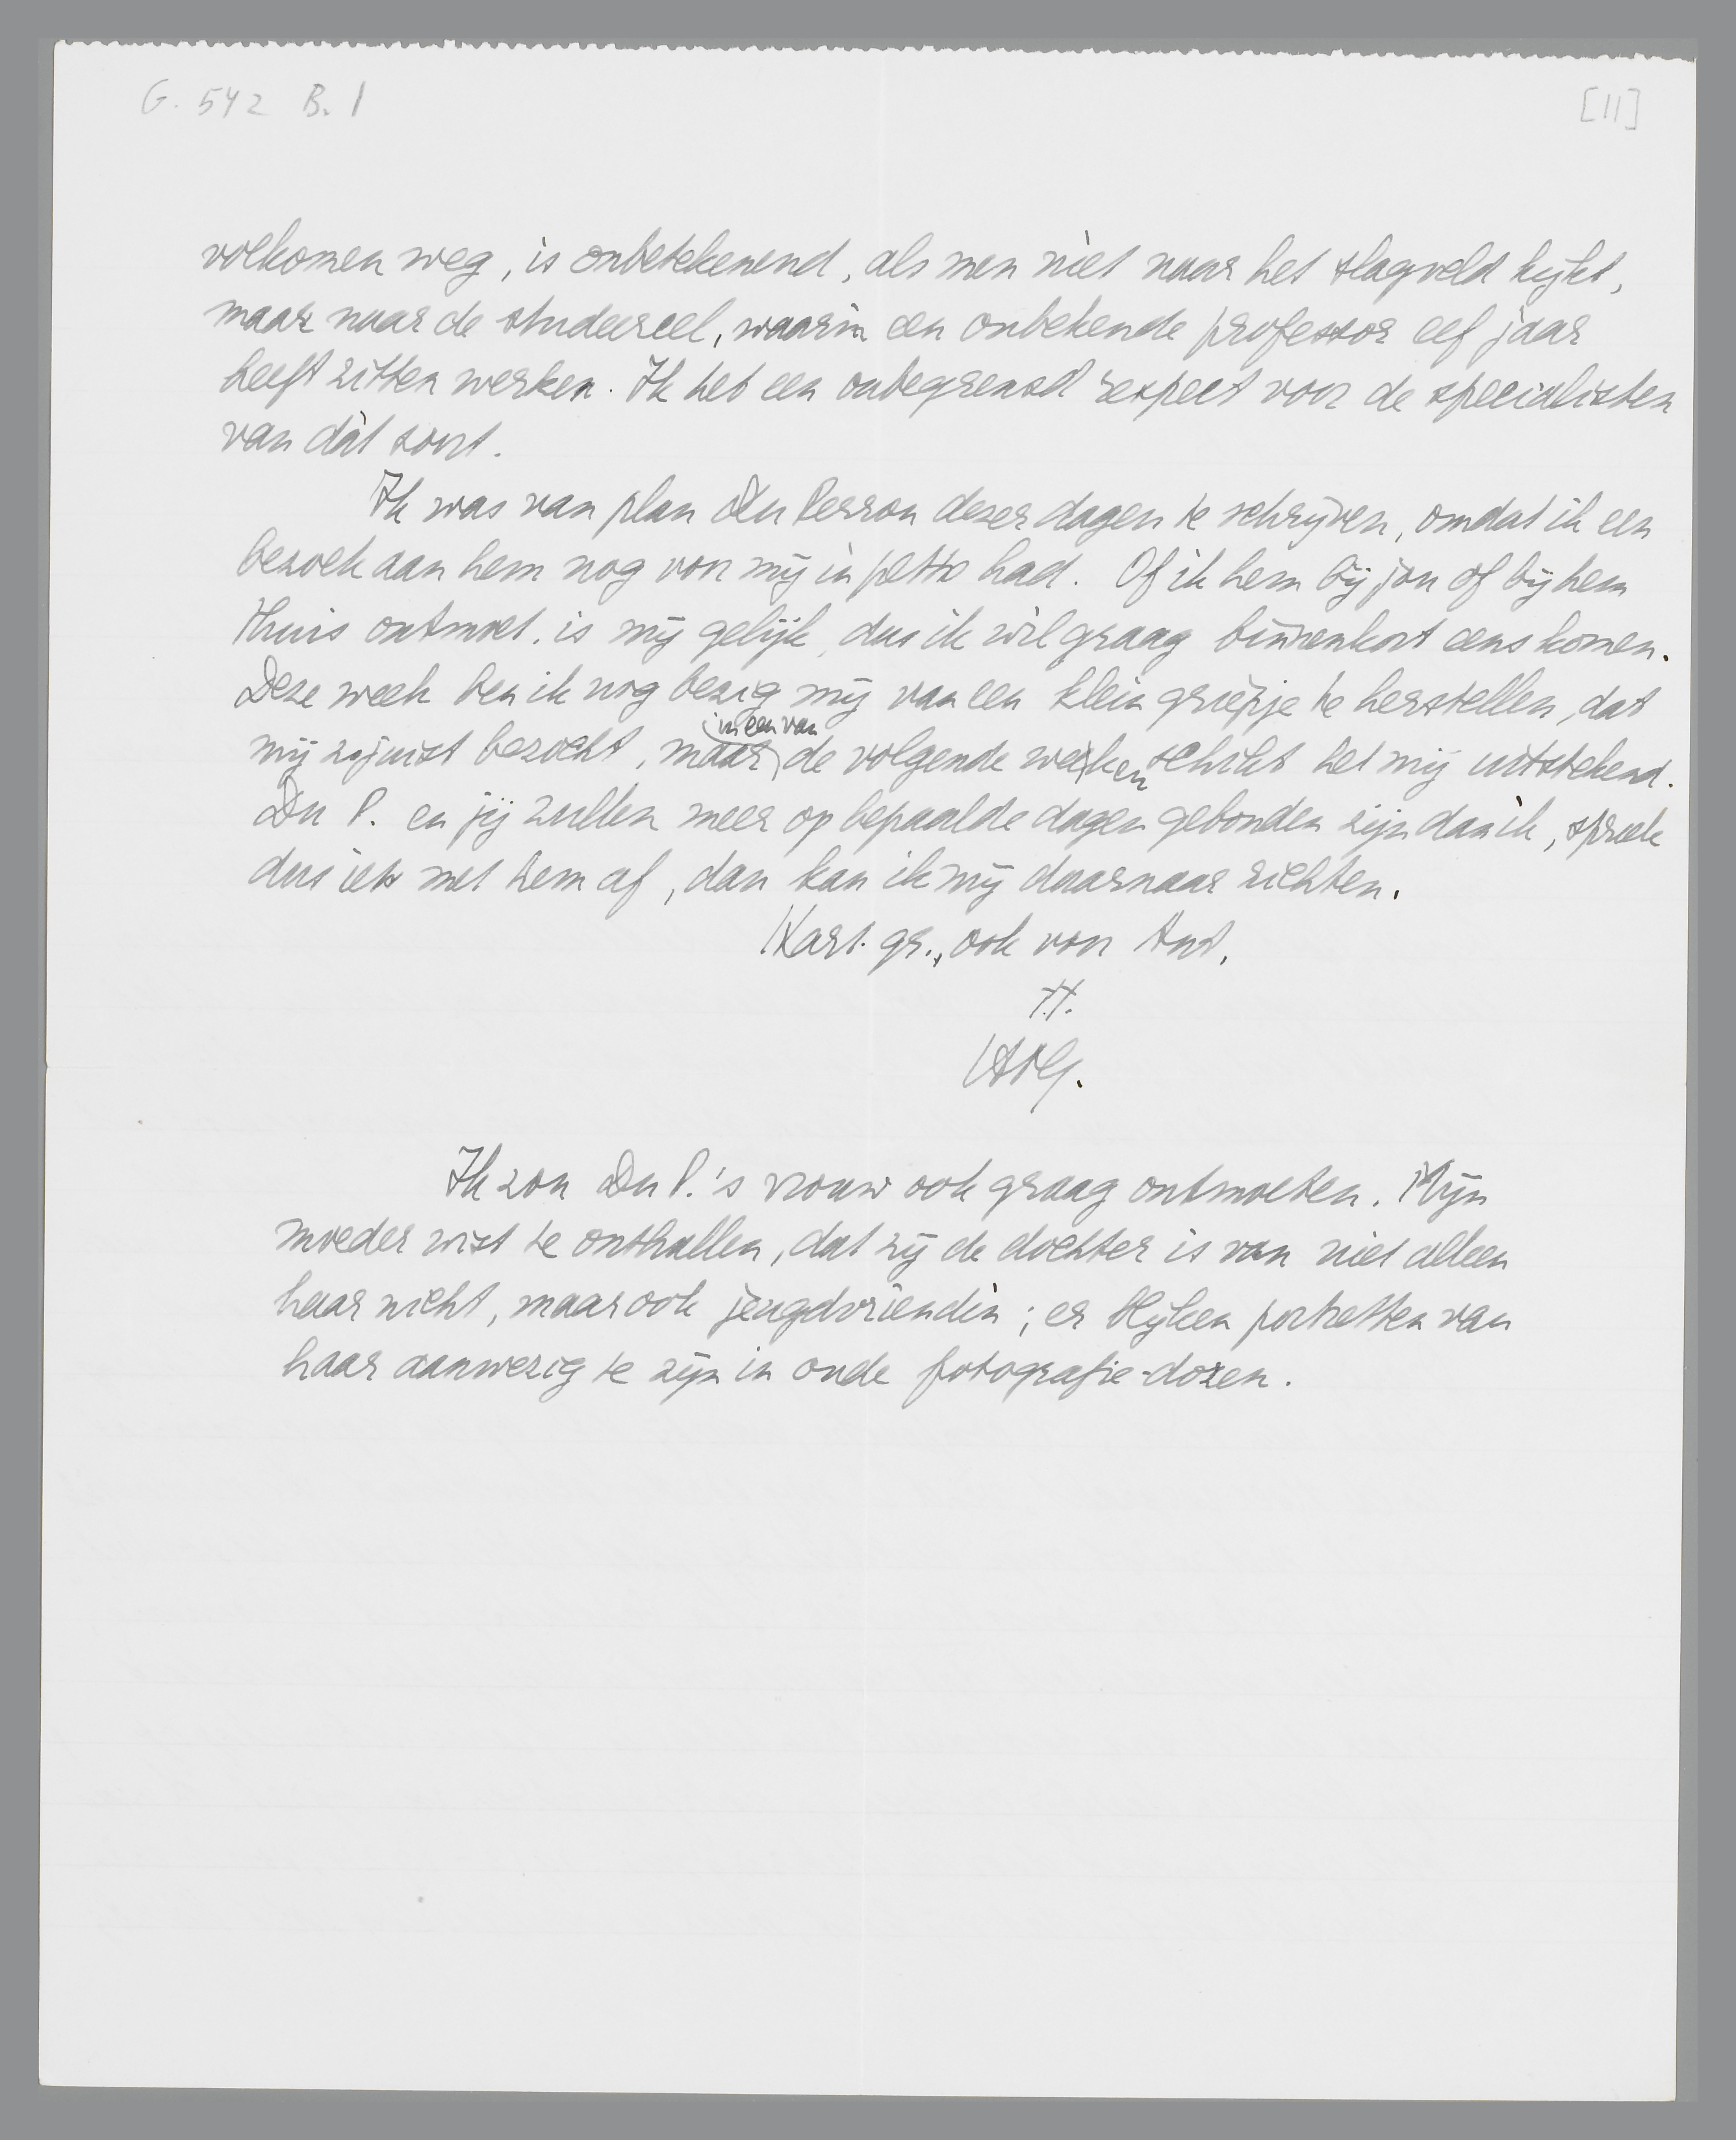 G. 542 B. 1
[11]
volkomen weg, is onbetekenend, als men niet naar het slagveld kijkt,
maar naar de studeercel, waarin een onbekende professor elf jaar
heeft zitten werken. Ik heb een onbegrensd respect voor de specialisten
van dàt soort.
Ik was van plan Du Perron dezer dagen te schrijven, omdat ik een
bezoek aan hem nog voor mij in petto had. Of ik hem bij jou of bij hem
thuis ontmoet, is mij gelijk, dus ik wil graag binnenkort eens komen.
Deze week ben ik nog bezig mij van een klein griepje te herstellen, dat
in een van
mij zojuist bezocht, maar de volgende weken schikt het mij uitstekend.
Du P. en jij zullen meer op bepaalde dagen gebonden zijn dan ik, spreek
dus iets met hem af, dan kan ik mij daarnaar richten.
Hart. gr., ook voor Ant,
t.t.
Ik zou Du P.'s vrouw ook graag ontmoeten. Mijn
moeder wist te onthullen, dat zij de dochter is van niet alleen
haar nicht, maar ook jeugdvriendin; er blijken portretten van
haar aanwezig te zijn in oude fotografie-dozen.